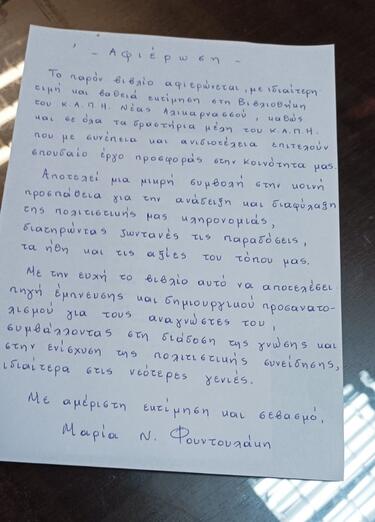 - Αφιέρωση -
Το παρόν βιβλίο αφιερώνεται, με ιδιαίτερη
τιμή και βαθειά εκτίμηση στη Βιβλιοθήκη
του Κ.Α.Π.Η. Νέας Αλικαρνασσού, καθώς
και σε όλα τα δραστήρια μέλη του Κ.Α.Π.Η.
που με συνέπεια και ανιδιοτέλεια επιτελούν
σπουδαίο έργο προσφοράς στην κοινότητα μας.
Αποτελεί μια μικρή συμβολή στην κοινή
προσπάθεια για την ανάδειξη και διαφύλαξη
της πολιτιστικής μας κληρονομιάς,
διατηρώντας ζωντανές τις παραδόσεις,
τα ήθη και τις αξίες του τόπου μας.
Με την ευχή το βιβλίο αυτό να αποτελέσει
πηγή έμπνευσης και δημιουργικού προσανατο-
λισμού για τους αναγνώστες του,
συμβάλλοντας στη διάδοση της γνώσης και
στην ενίσχυση της πολιτιστικής συνείδησης,
ιδιαίτερα στις νεότερες γενιές.
Με αμέριστη εκτίμηση και σεβασμό,
Μαρία Ν. Φουντουλάκη